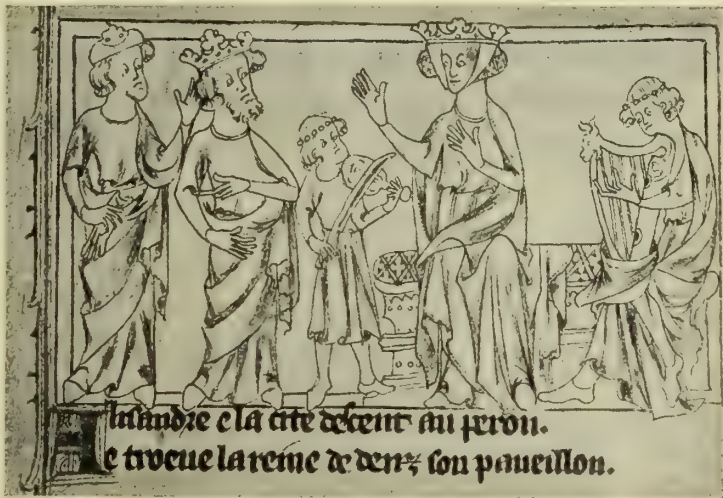 Alisandre e la cite descent au peron.
e troeue la reine de denz son paueillon.